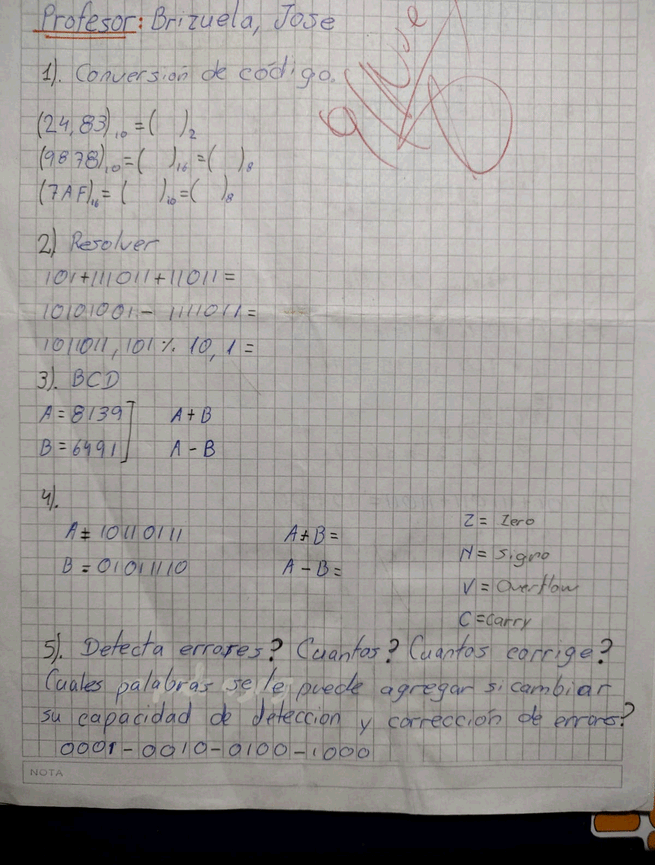 Profesor: Brizuela, Jose
1). Conversión de código.
(24,83)₁₀ = (   )₂
(9878)₁₀ = (   )₁₆ = (   )₈
(7AF)₁₆ = (   )₁₀ = (   )₈
2) Resolver
101+111011+11011=
10101001 - 1111011=
1011011,101 % 10,1=
3). BCD
A = 8139] A + B
B = 6491] A - B
4).
A = 10110111 A + B =
B = 01011110 A - B =
Z = Zero
N = Signo
V = Overflow
C = Carry
5). Detecta errores? Cuantos? Cuantos corrige?
Cuales palabras se le puede agregar si cambiar
su capacidad de deteccion y corrección de errores?
0001-0010-0100-1000
NOTA